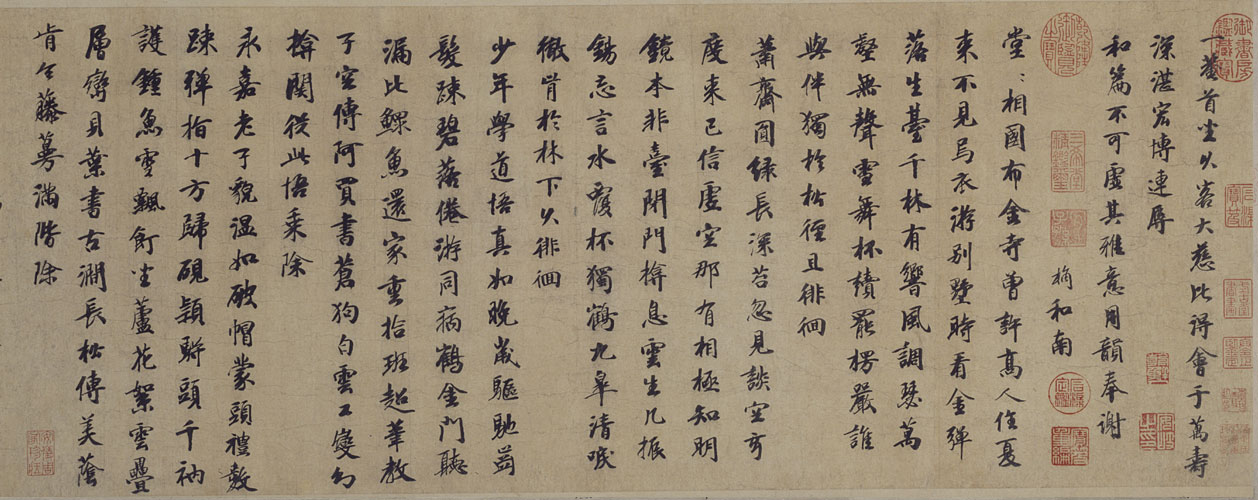 一菴首坐久客大慈比得會于萬壽
深湛宏博連辱
和篇不可虛其雅意用韻奉謝
和南
堂〻相國布金寺曾許高人住夏
來不見烏衣游別墅時看金彈
落生臺千林有響風調瑟萬
壑無聲雪舞杯讀罷楞嚴誰
與伴獨於松徑且徘徊
蕭齋面綠長深苔忽見談空亨
度來已信虛空那有相極知明
鏡本非臺閉門揜息雲生几振
錫忘言水覆杯獨鶴九皋清唳
徹肯於林下久徘徊
少年學道悟真如晚歲驅馳齒
髮疎碧落倦游同病鶴金門聽
漏比鰥魚還家重拾班超筆教
子空傳阿買書蒼狗白雲工變幻
揜關從此悟乘除
永嘉老子貌温如破帽蒙頭禮數
疎彈指十方歸硯穎駢頭千衲
護鍾魚雪飄飣坐蘆花絮雲疊
層巒貝葉書古澗長松傳美蔭
肯令藤蔓滿階除
御書房鑑藏寶
三希堂精鑑璽
宜子孫